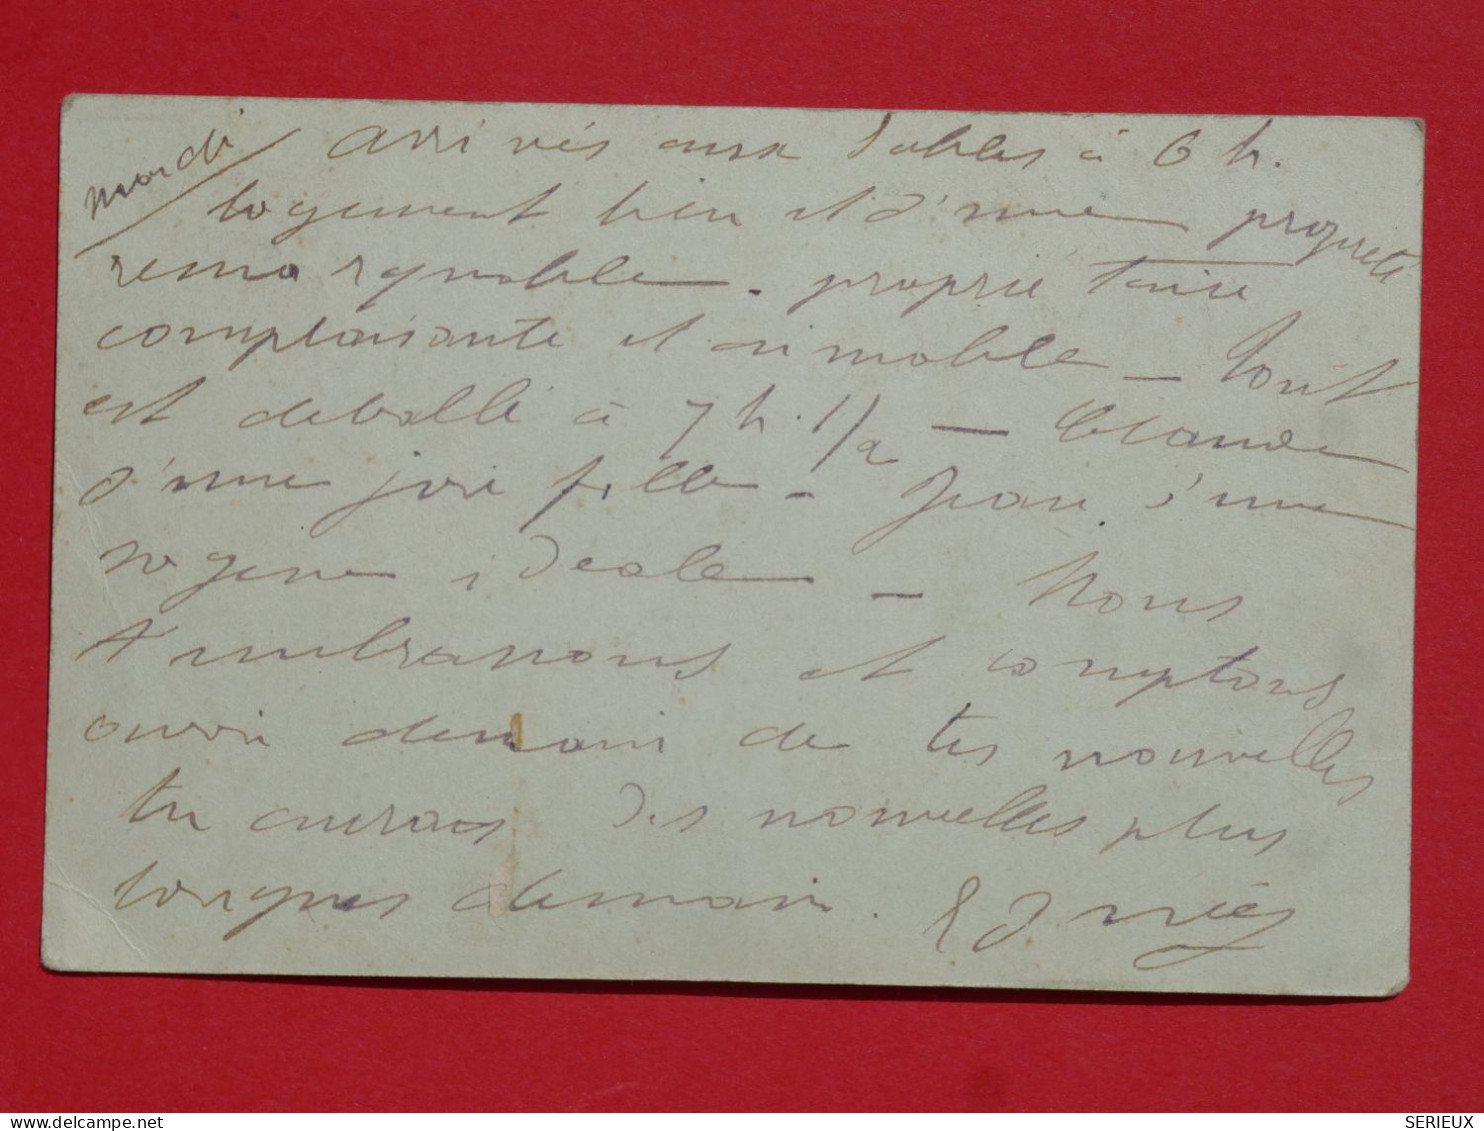 mardi
arrivés aux Sables à 6 h.
logement bien et d'une propreté
remarquable - propriétaire
complaisante et aimable - Tout
est deballé à 7 h. 1/2 - Claude
d'une joie folle - Jean d'une
sagesse idéale - Nous
t'embrassons et comptons
avoir demain de tes nouvelles
tu auras des nouvelles plus
longues demain.
www.delcampe.net
SERIEUX